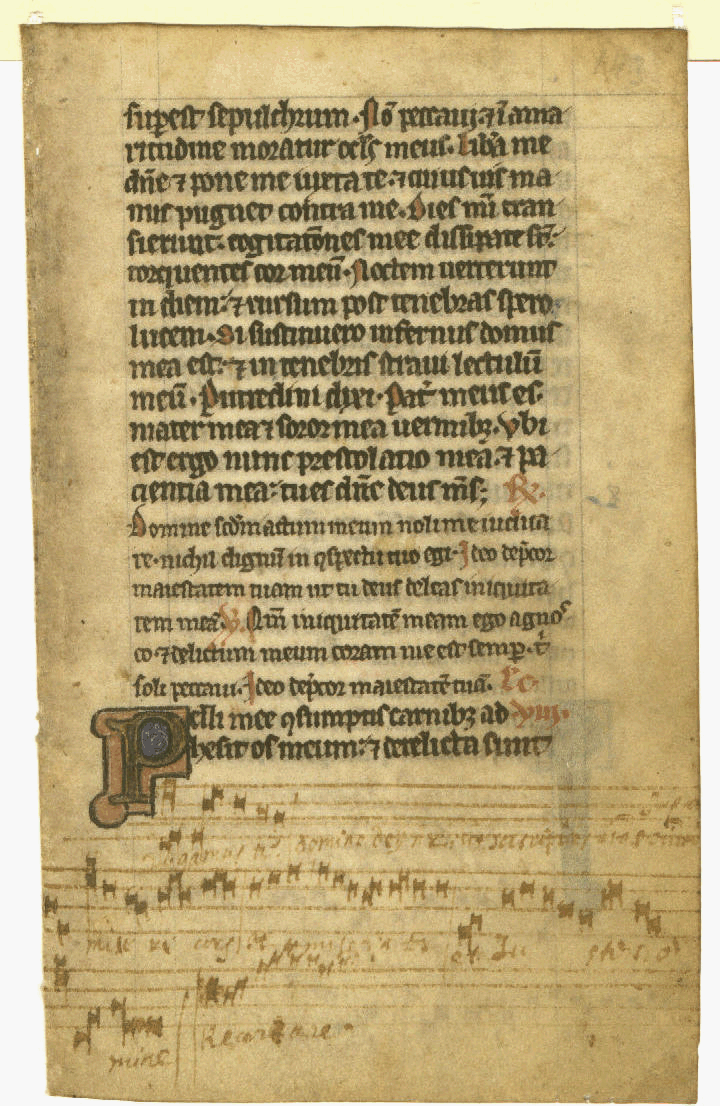 supest sepulchrum. Nō peccaui; ⁊ ī ama
ritudine moratur ocls meus. Libā me
dñe ⁊ pone me iuxta te: ⁊ cuiusuis ma
nus pugnet contra me. Dies mī tran
sierunt: cogitatōnes mee dissipate st̄:
torquentes cor meū. Noctem uerterunt
in diem: ⁊ rursum post tenebras spero
lucem. Si sustinuero infernus domus
mea est: ⁊ in tenebris straui lectulū
meū. Putredini dixi. Pat̄ meus es.
mater mea ⁊ soror mea uermibꝫ. Vbi
est ergo nunc prestolatio mea: ⁊ pa
cientia mea: tu es dñe deus m̄s; R.
Domine scdm actum meum noli me iudica
re. nichil dignū in ꝯspectu tuo egi. Ideo dep̄cor
maiestatem tuam ut tu deus deleas iniquita
tem meā. V. Qm̄ iniquitatē meam ego agnos
co ⁊ delictum meum coram me est semp. t̄
soli peccaui. Ideo dep̄cor maiestatē tuā. Lc.
Pelli mee ꝯsumptis carnibꝫ ad viii.
hesit os meum: ⁊ derelicta sunt
domine
mine Recordare